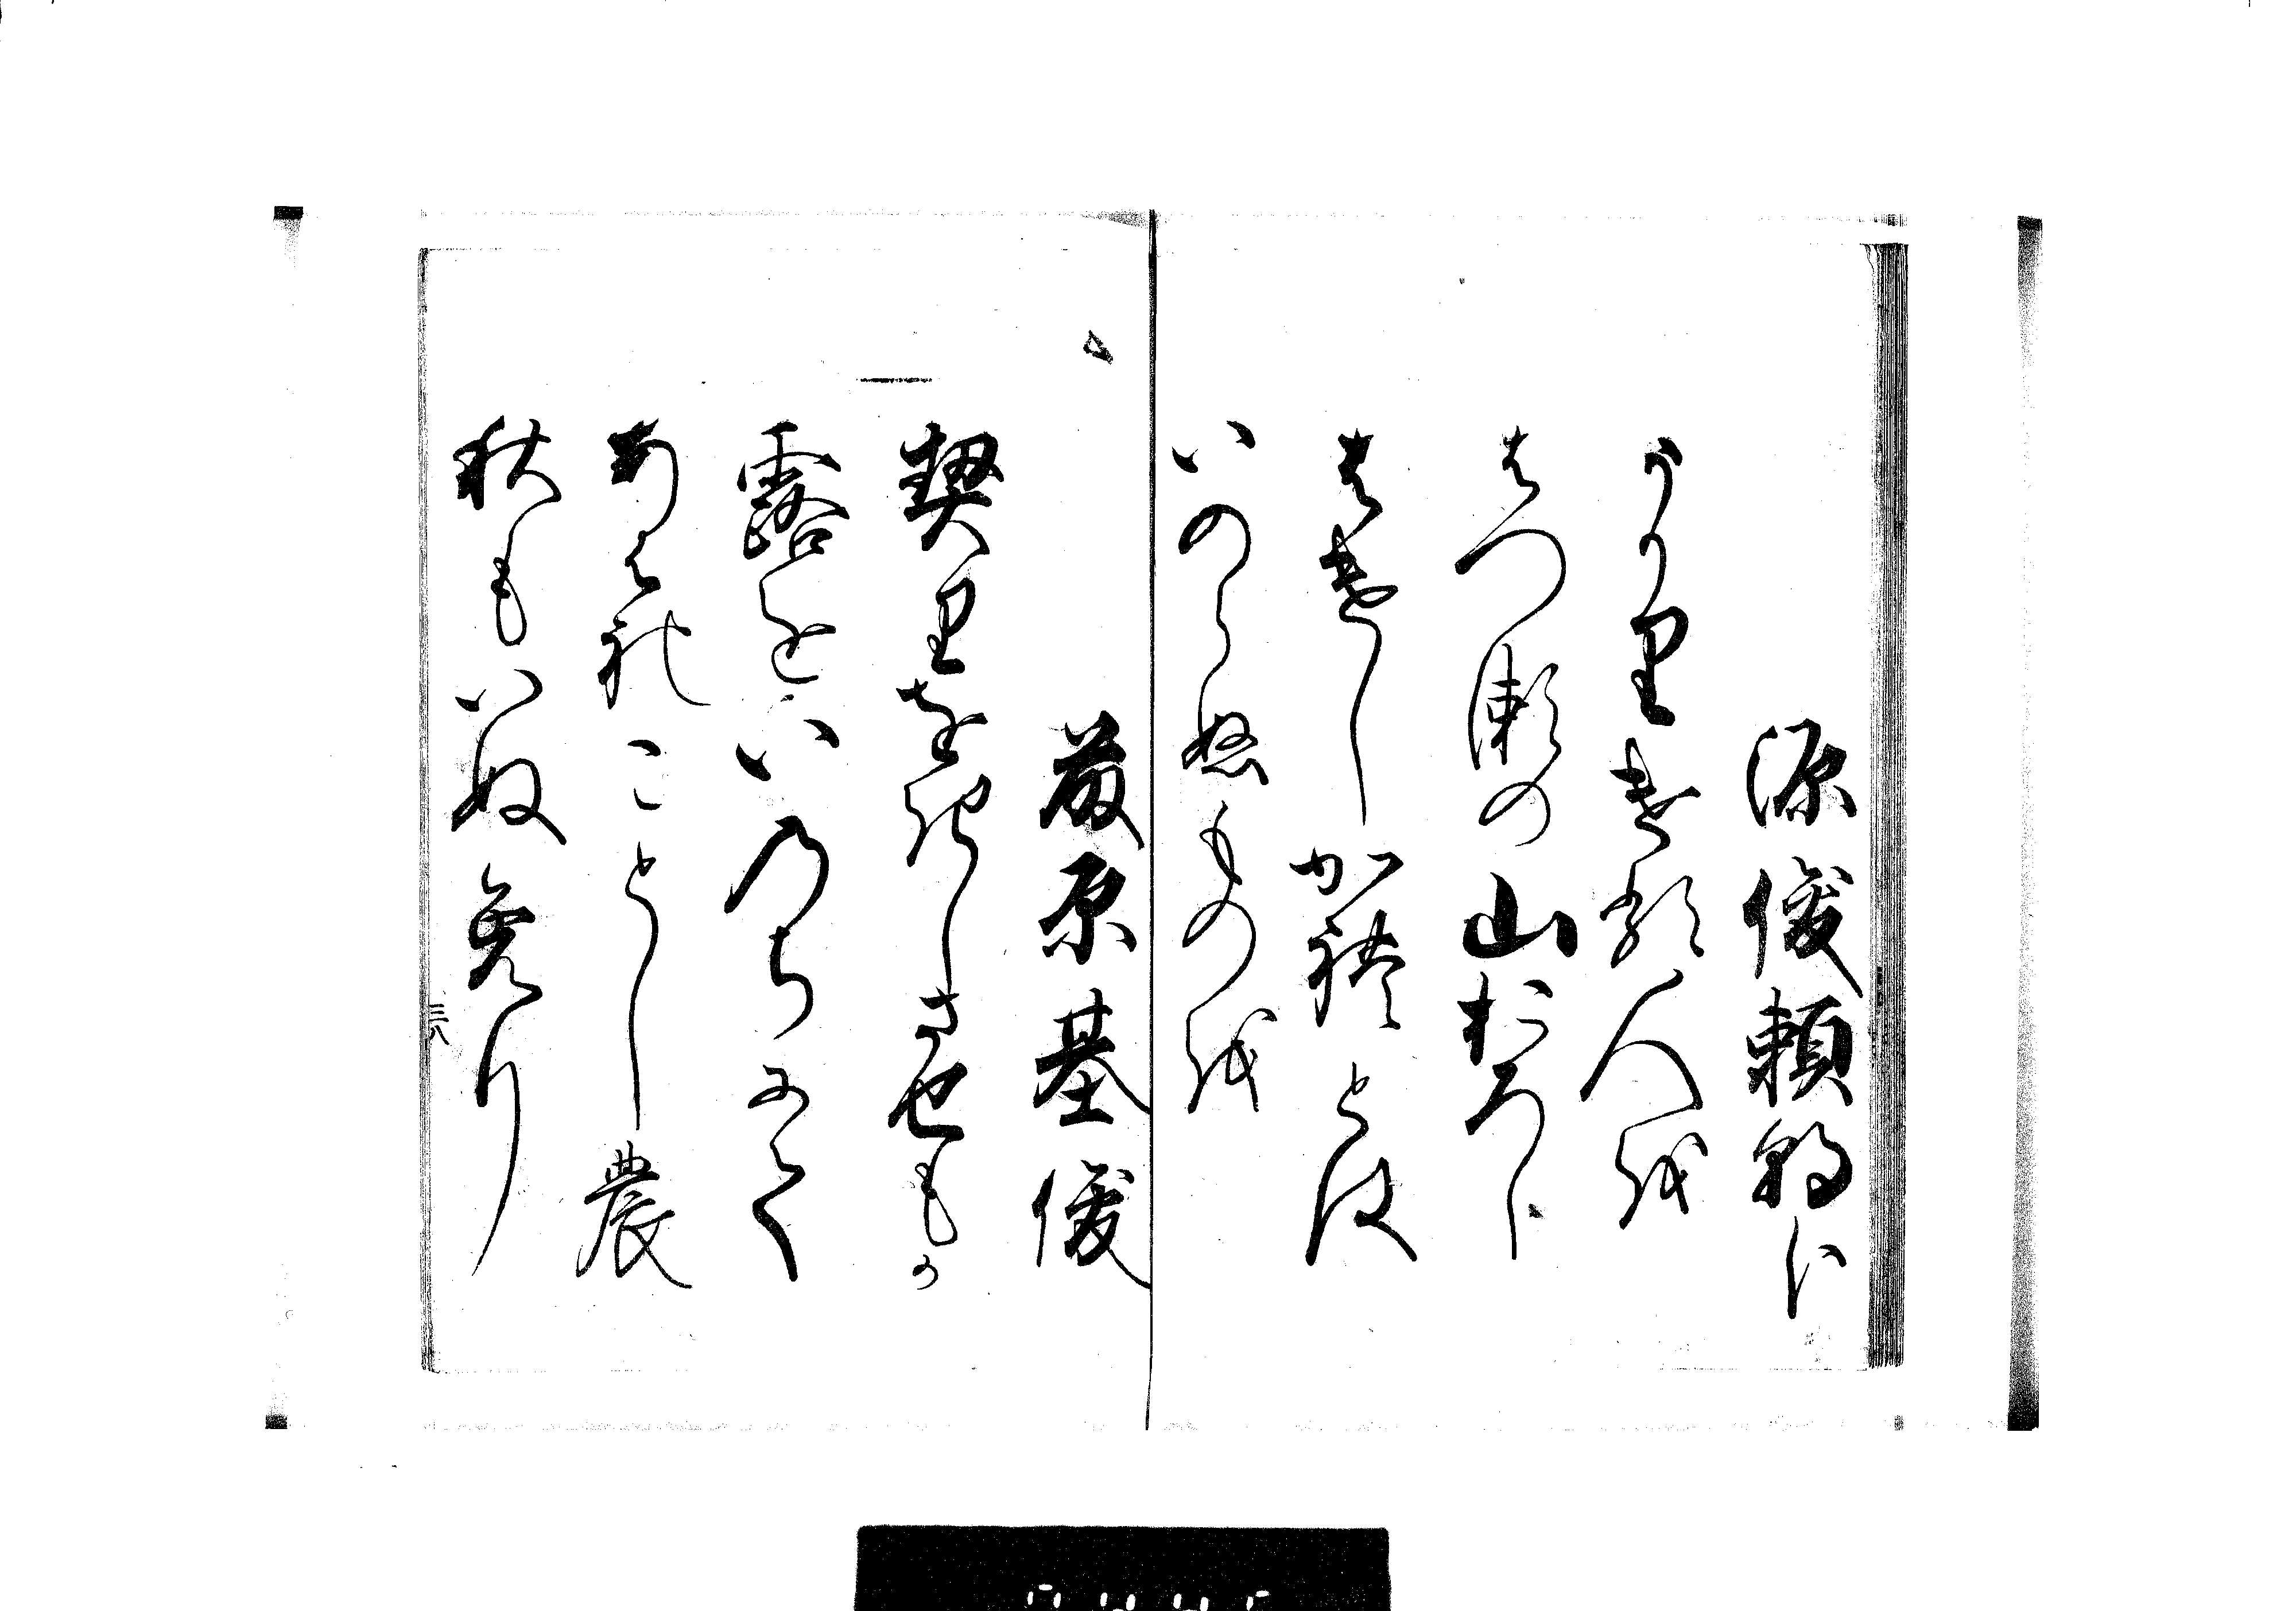 源俊頼朝臣
うかりける人を
はつ瀬の山おろし
はけしかれとは
いのらぬものを
藤原基俊
契りをきしさせもか
露をいのちにて
あはれことしの
秋もいぬめり
三八